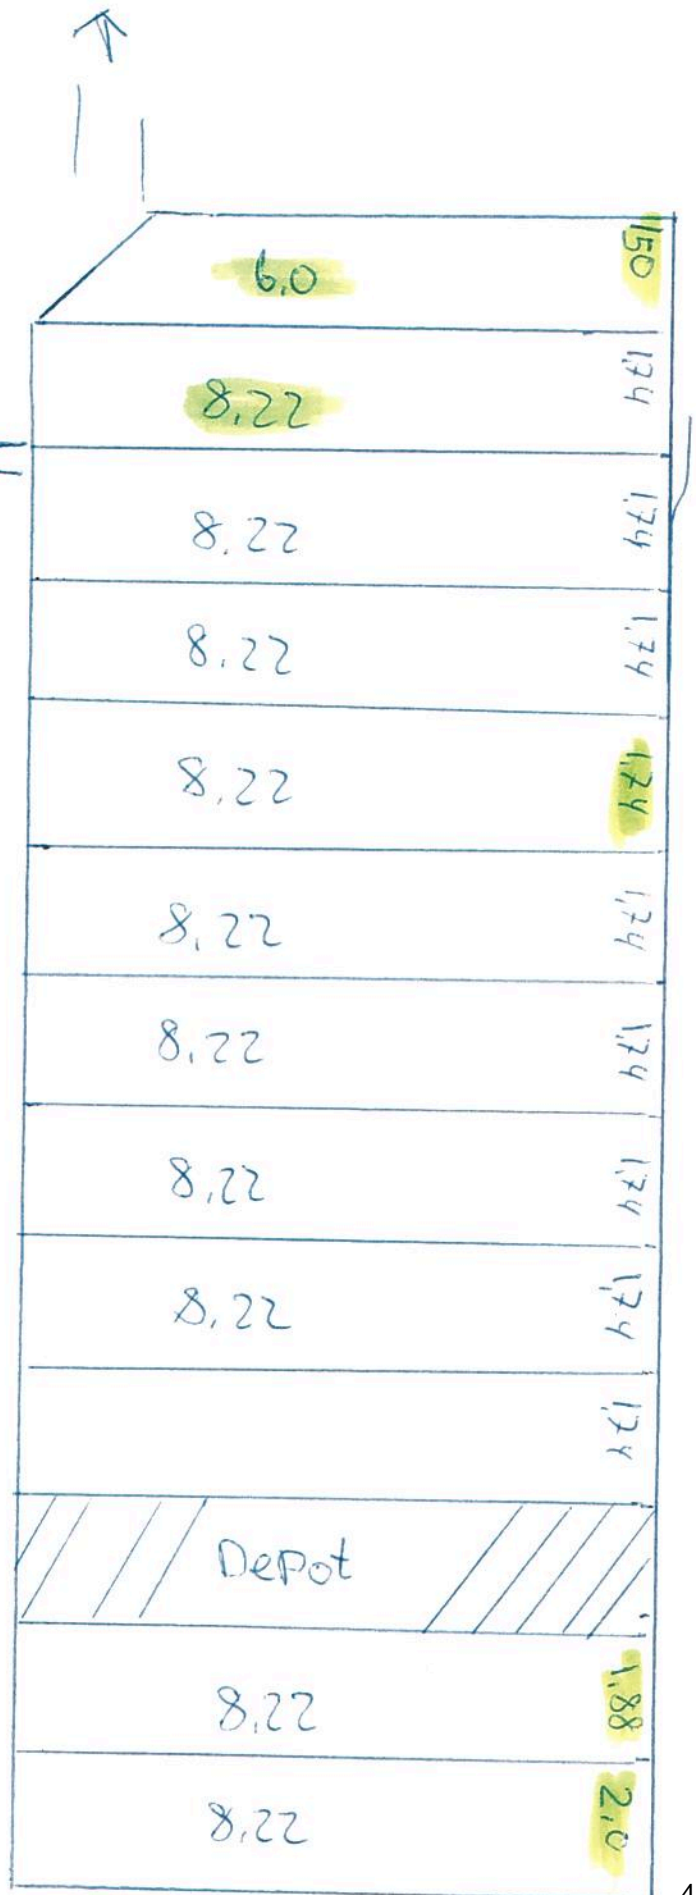 6,0 150
8,22 1,74
8,22 1,74
8,22 1,74
8,22 1,74
8,22 1,74
8,22 1,74
8,22 1,74
8,22 1,74
1,74
Depot
8,22 1,88
8,22 2,0
4